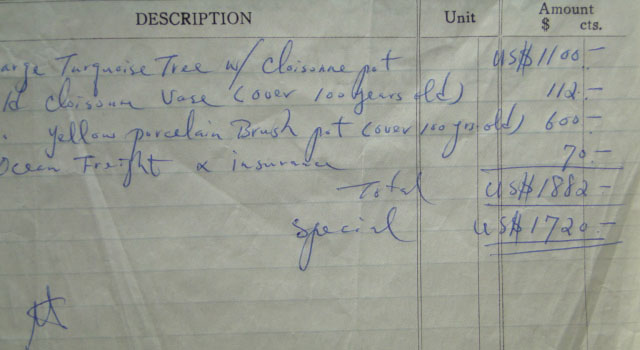 DESCRIPTION Unit Amount
$ cts.
arge Turquoise Tree w/ Cloisonne pot US$1100.-
ld Cloisonne Vase (over 100 years old) 112.-
yellow porcelain Brush pot (over 100 yrs old) 600-
Ocean Freight & insurance 70.-
Total US$1882-
Special US$1720.-